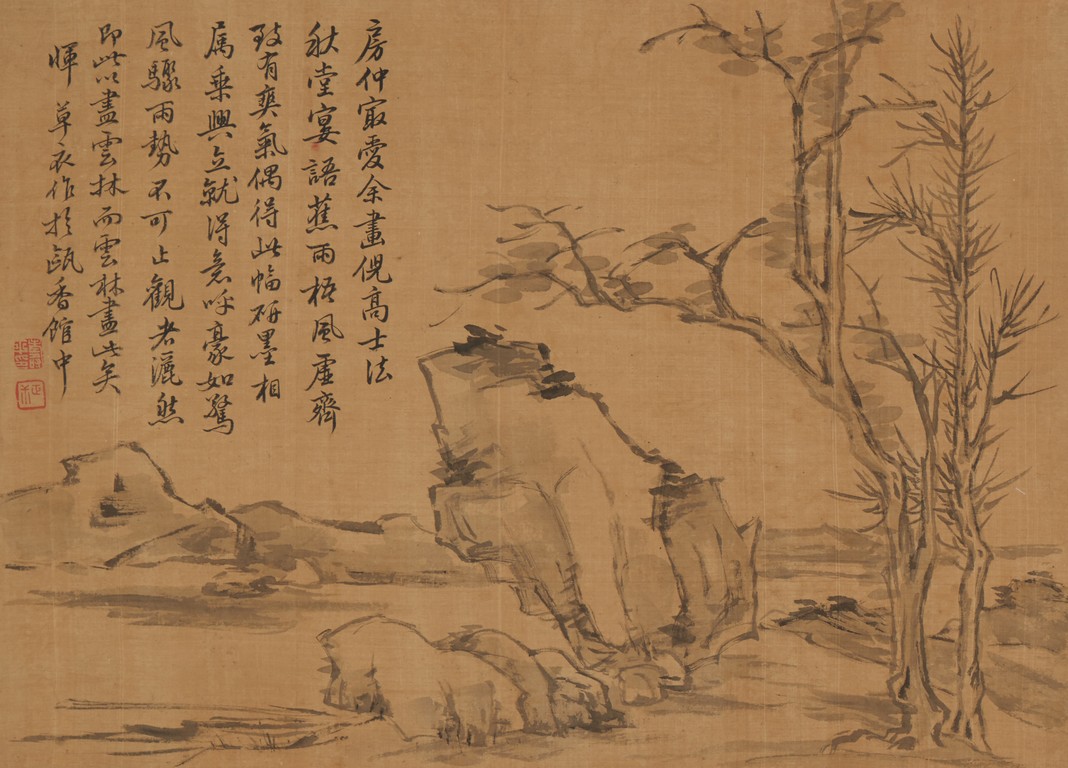 房仲寂愛余畫倪高士法
秋堂宴語蕉雨梧風虛齋
致有爽氣偶得此幅研墨相
屬乗興立就得意呼豪如驚
風驟雨勢不可止觀者灑然
即此以盡雲林而雲林盡此矣
暉 草衣作於甌香館中